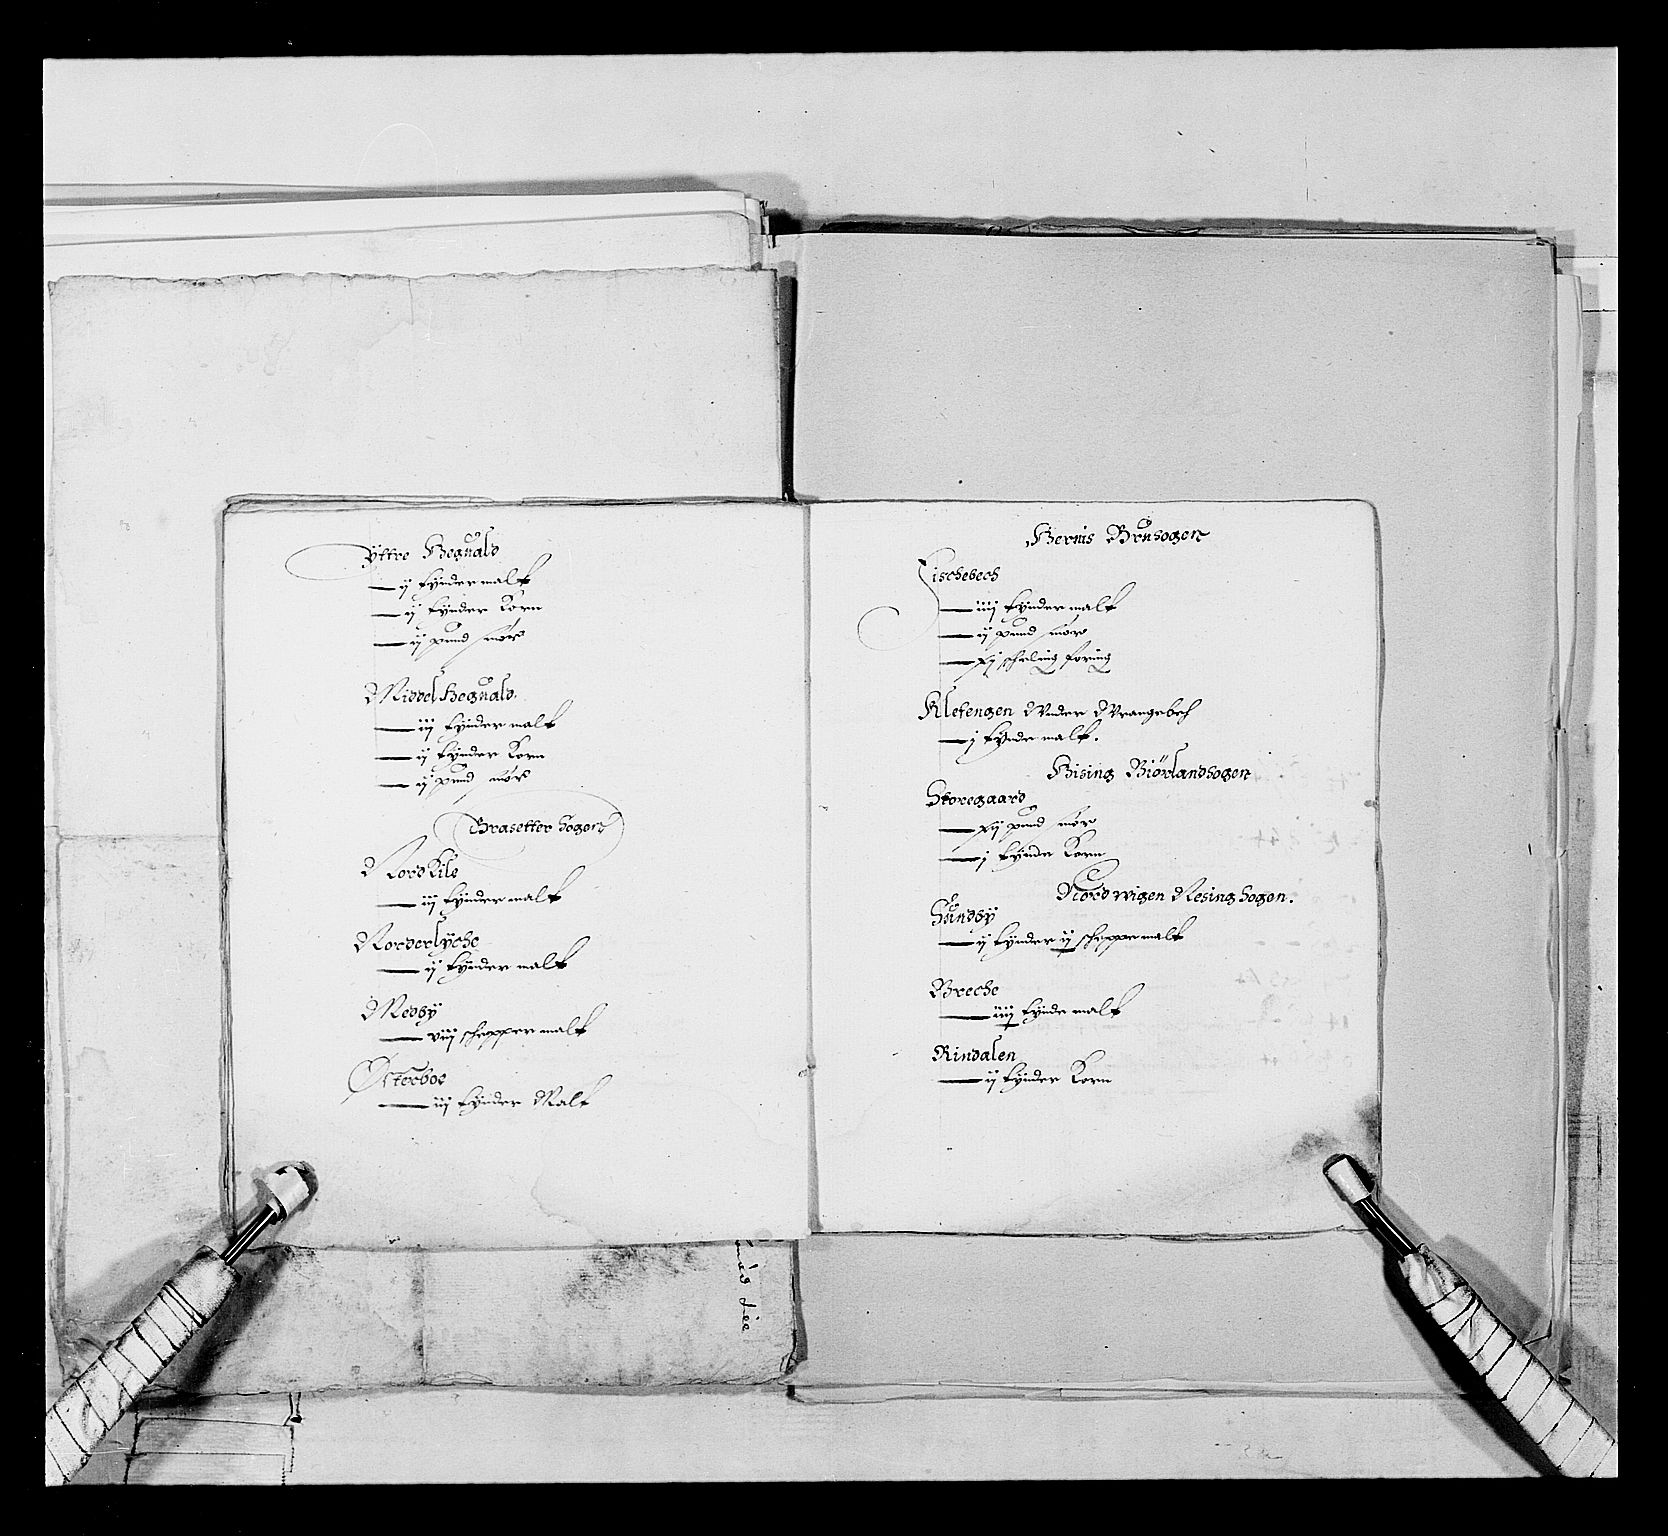 Yttre Hoguald
ij tÿnder malt
ij tÿnder Korn
ij pund smör
Middel Hoguald.
iij tÿnder malt
ij tÿnder Korn
ij pund smör
Brasetter Sogen
Nord Kile
iij tÿnder malt
Norderlÿche
ij tÿnder malt
Medbÿ
viij schepper malt
Østerboe
iij tÿnder Malt
Bernis Brusogen
Fischebech
iiij tÿnder malt
ij pund smör
xij scheling foring
Kletengen Vnder Vrangebech
j tÿnde malt.
Hising Biörlandsogen
Storegaard
xij pund smör
j tÿnde Korn
Nordwigen Resing Sogen.
Sundbÿ
ij tÿnder ij scheppe malt
Breche
iiij tÿnde malt
Rindalen
ij tÿnder Korn